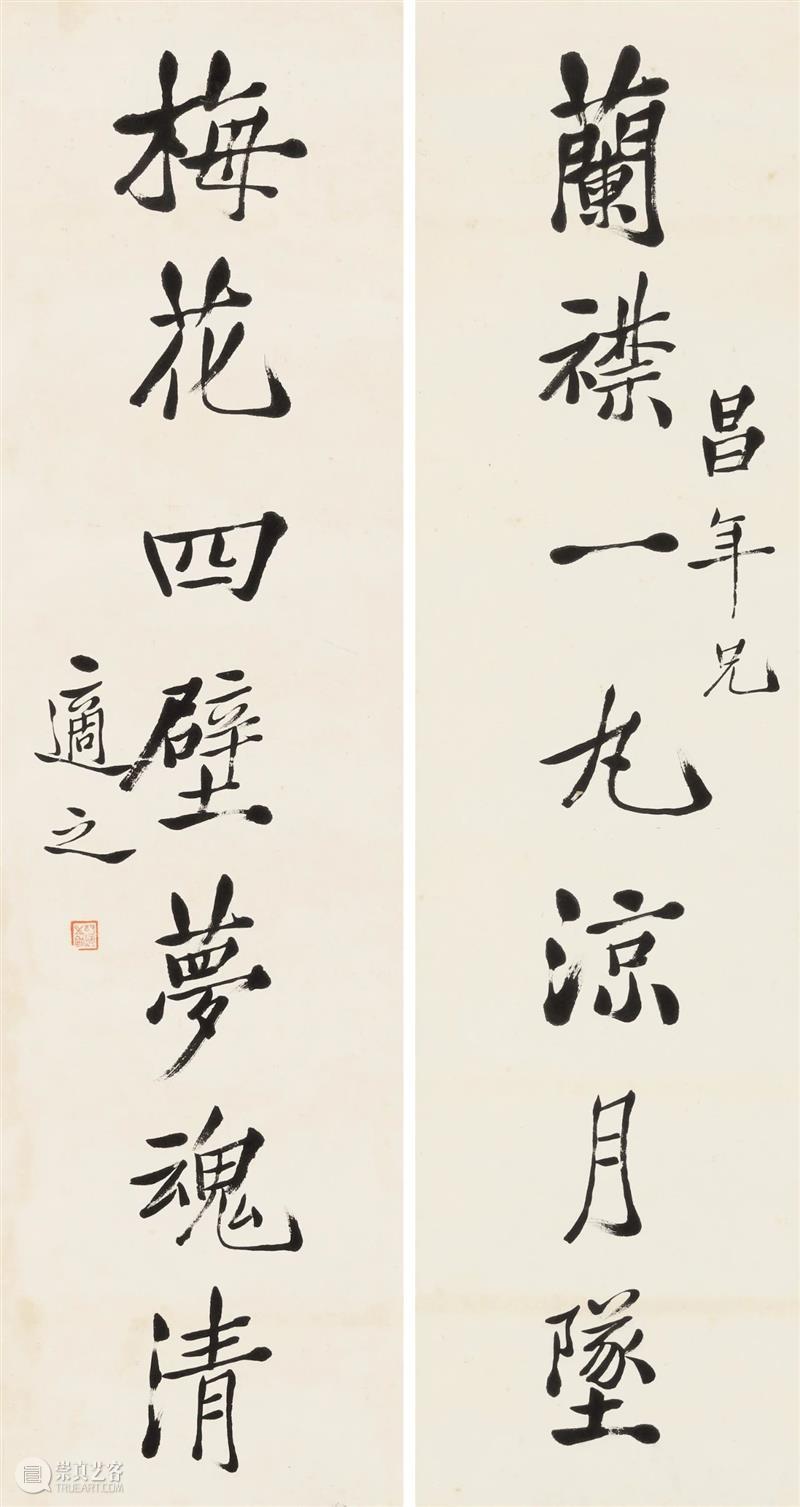 蘭襟一丸涼月墜
昌年兄
梅花四壁夢魂清
適之
崇真艺客
WWW.TRUEART.COM